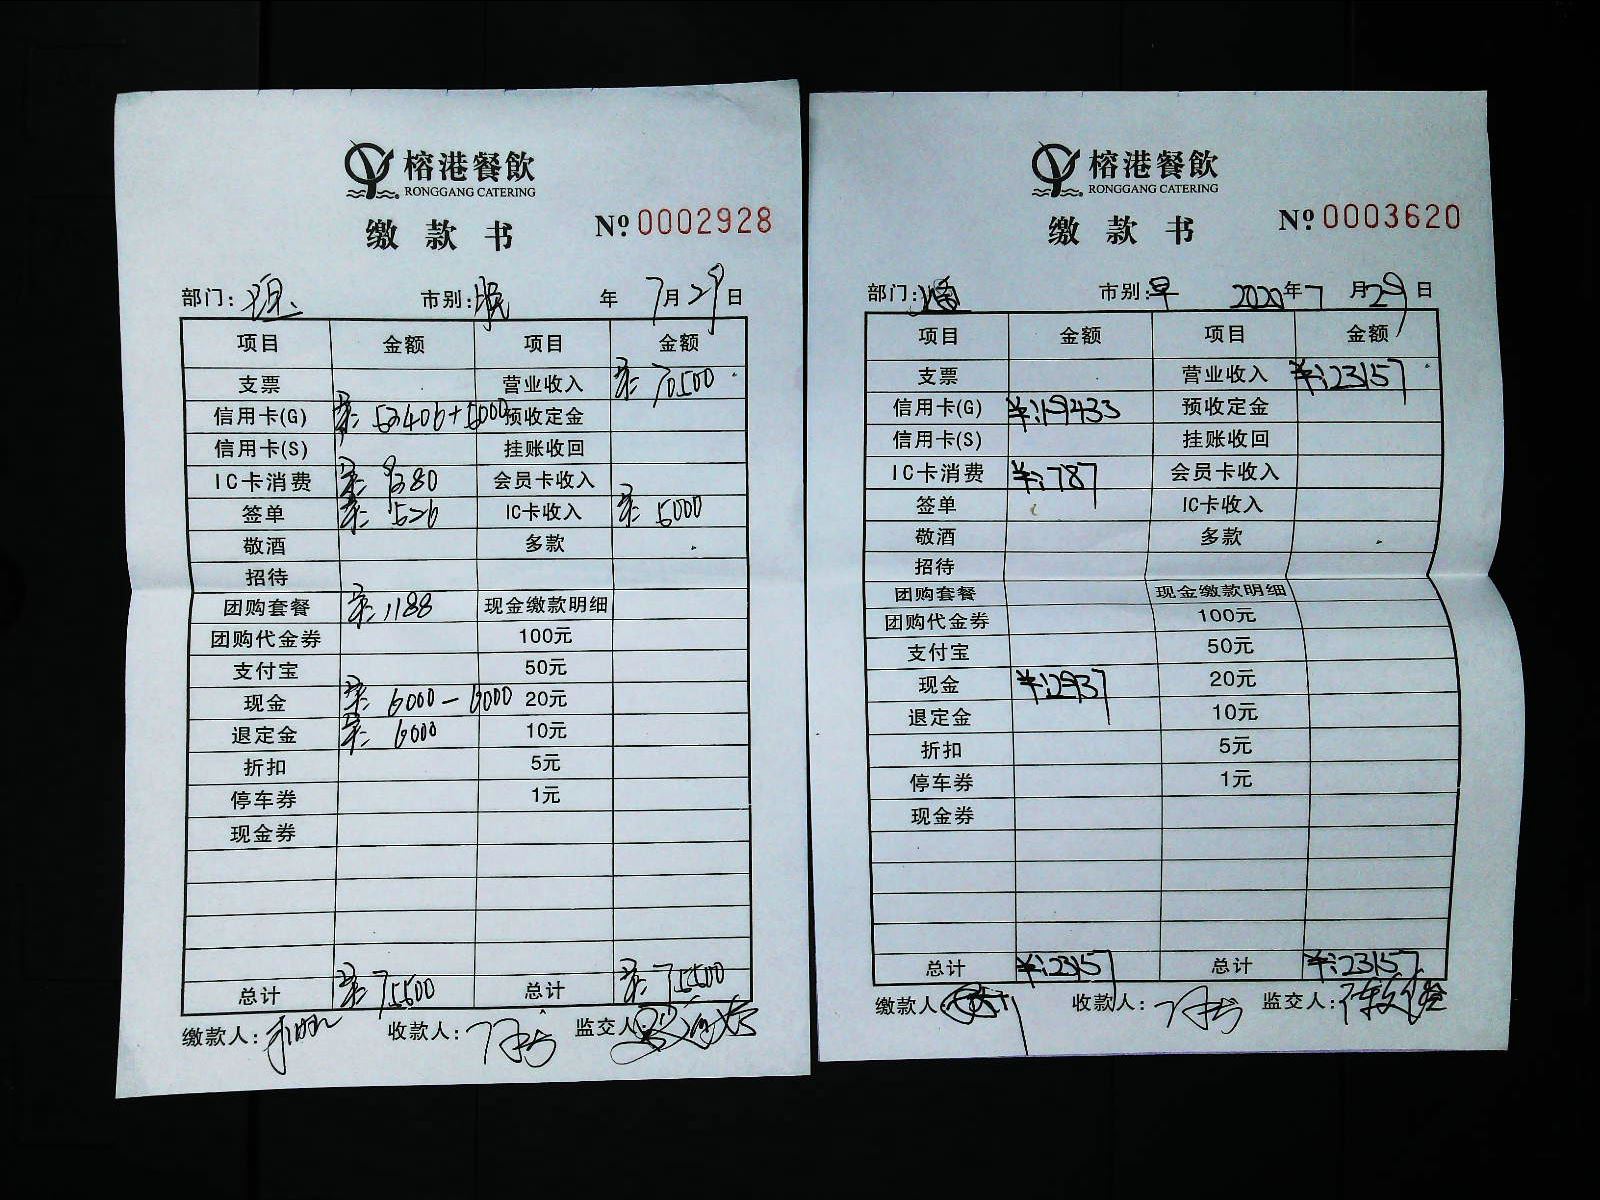 榕港餐飲
RONGGANG CATERING
缴款书
№ 0002928
部门: 市别: 晚 年 7月29日
项目 金额 项目 金额
支票 营业收入 ¥: 70500
信用卡(G) ¥: 53406+5000 预收定金
信用卡(S) 挂账收回
IC卡消费 ¥: 9380 会员卡收入
签单 ¥: 526 IC卡收入 ¥: 5000
敬酒 多款
招待
团购套餐 ¥: 1188 现金缴款明细
团购代金券 100元
支付宝 50元
现金 ¥: 6000-6000 20元
退定金 ¥: 6000 10元
折扣 5元
停车券 1元
现金券
总计 ¥: 75500 总计 ¥: 75500
缴款人: 收款人: 监交人:
榕港餐飲
RONGGANG CATERING
缴款书
№ 0003620
部门: 市别: 早 2020年7月29日
项目 金额 项目 金额
支票 营业收入 ¥:23157
信用卡(G) ¥:19433 预收定金
信用卡(S) 挂账收回
IC卡消费 ¥:787 会员卡收入
签单 IC卡收入
敬酒 多款
招待
团购套餐 现金缴款明细
团购代金券 100元
支付宝 50元
现金 ¥:2937 20元
退定金 10元
折扣 5元
停车券 1元
现金券
总计 ¥:23157 总计 ¥:23157
缴款人: 收款人: 监交人: